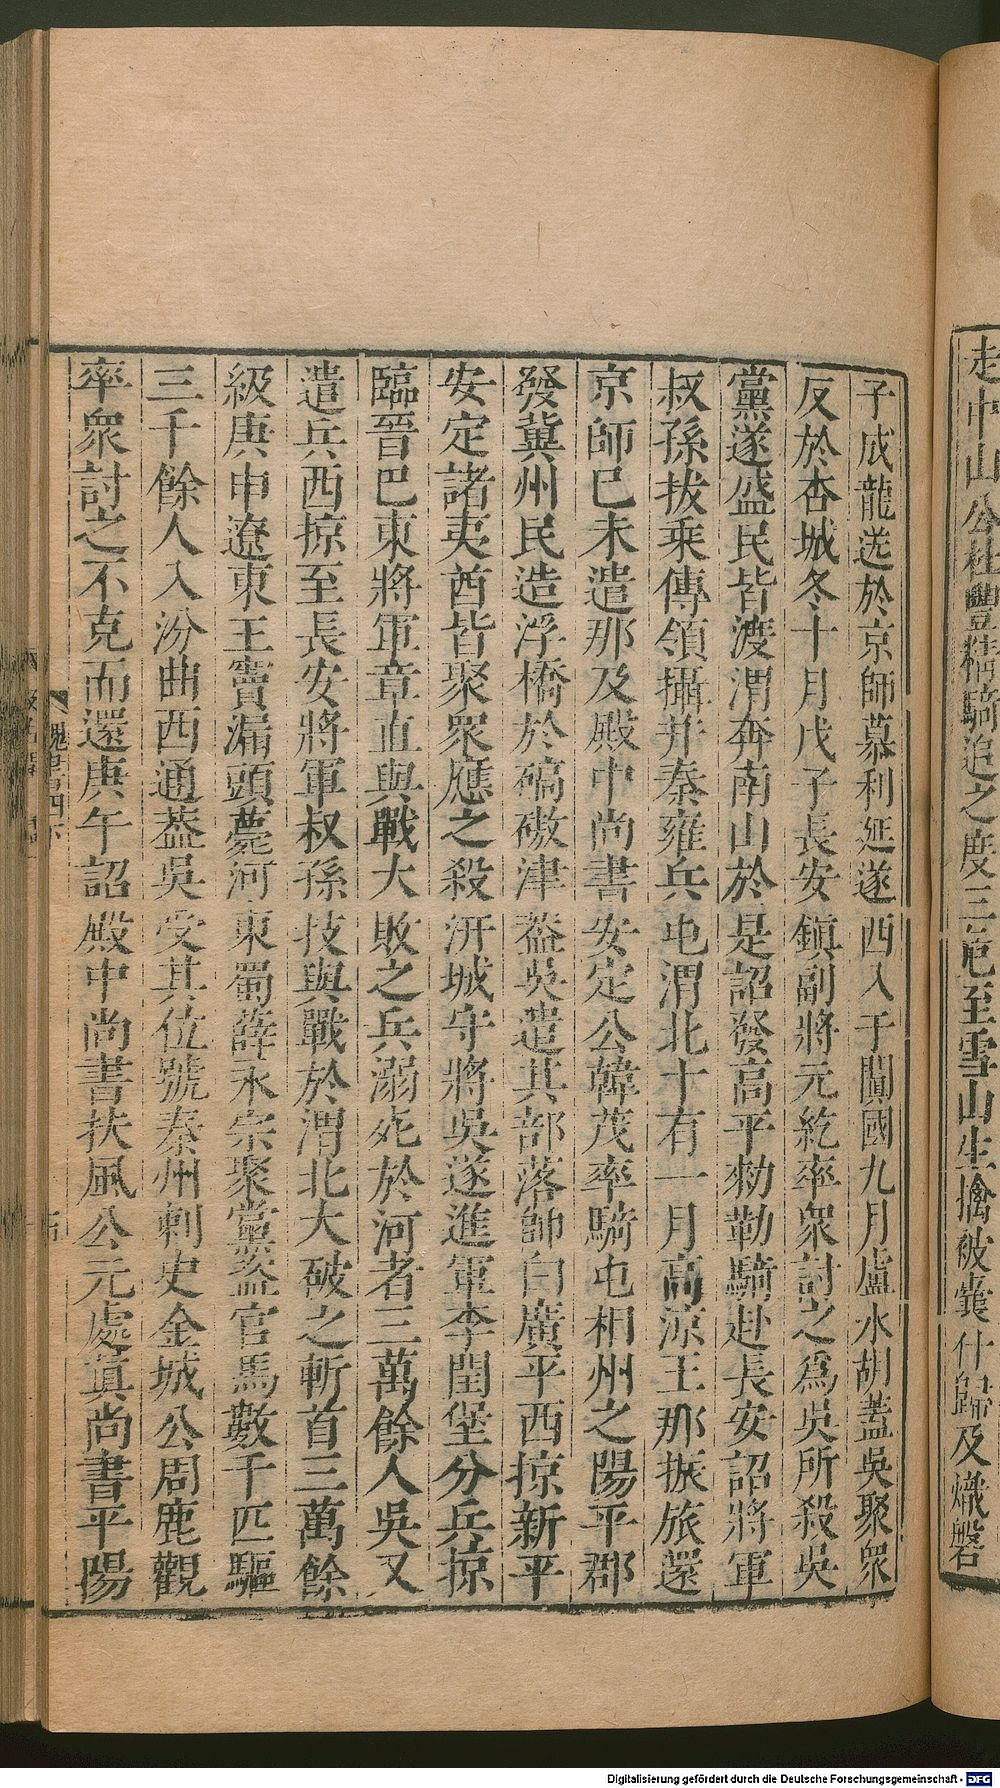 走中山公杜豐精騎追之度三危至雪山生擒被囊什歸及熾磐
子成龍送於京師慕利延遂西入于闐國九月盧水胡蓋吳聚衆
反於杏城冬十月戊子長安鎮副將元紇率衆討之爲吳所殺吳
黨遂盛民皆渡渭奔南山於是詔發高平勑勒騎赴長安詔將軍
叔孫拔乗傳領攝并秦雍兵屯渭北十有一月高涼王那振旅還
京師巳未遣那及殿中尚書安定公韓茂率騎屯相州之陽平郡
發冀州民造浮橋於碻磝津蓋吳遣其部落帥白廣平西掠新平
安定諸夷酋皆聚衆應之殺汧城守將吳遂進軍李閏堡分兵掠
臨晉巴東將軍章直與戰大敗之兵溺死於河者三萬餘人吳又
遣兵西掠至長安將軍叔孫技與戰於渭北大破之斬首三萬餘
級庚申遼東王竇漏頭薨河東蜀薛永宗聚黨盗官馬數千匹驅
三千餘人入汾曲西通蓋吳受其位號秦州刺史金城公周鹿觀
率衆討之不克而還庚午詔殿中尚書扶風公元處眞尚書平陽
魏書四下
Digitalisierung gefördert durch die Deutsche Forschungsgemeinschaft - DFG